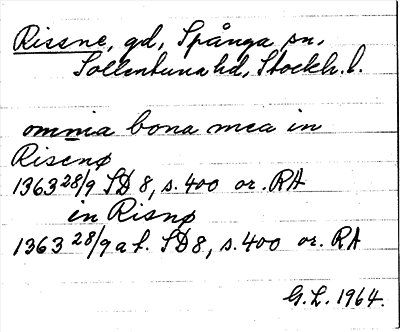 Rissne, gd, Spånga sn,
Sollentuna hd, Stockh. l.
omnia bona mea in
Risenø
1363 28/9 SD 8, s. 400 or. RA
in Risnø
1363 28/9 a f. SD 8, s. 400 or. RA
G. L. 1964.